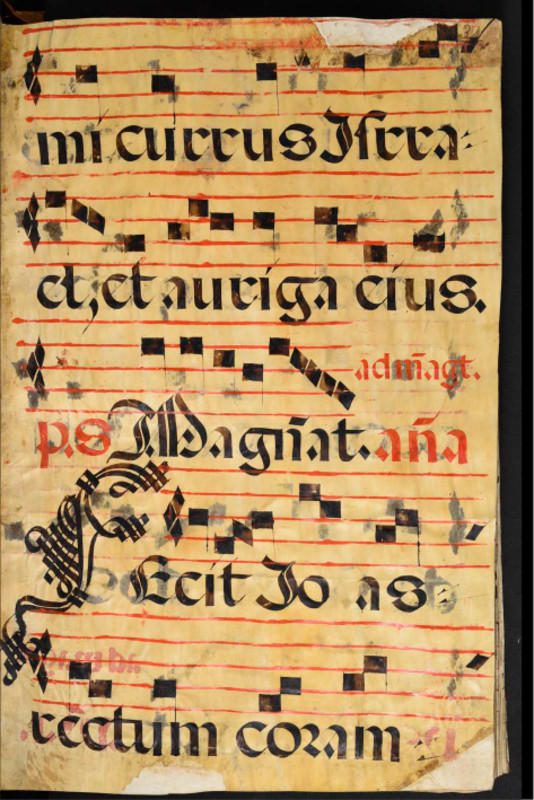 mi currus Isrra-
el, et auriga eius.
ad m̃agt.
p.s Magñat. aña
Fecit Jo as
rectum coram